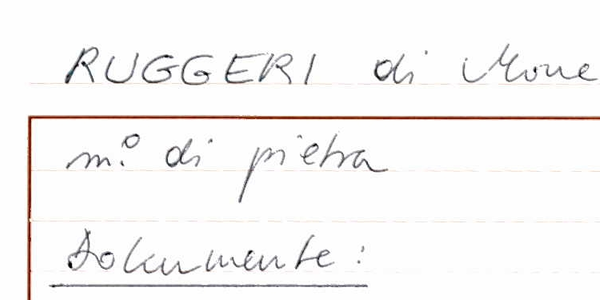 RUGGERI di Mone
m.º di pietra
Dokumente: